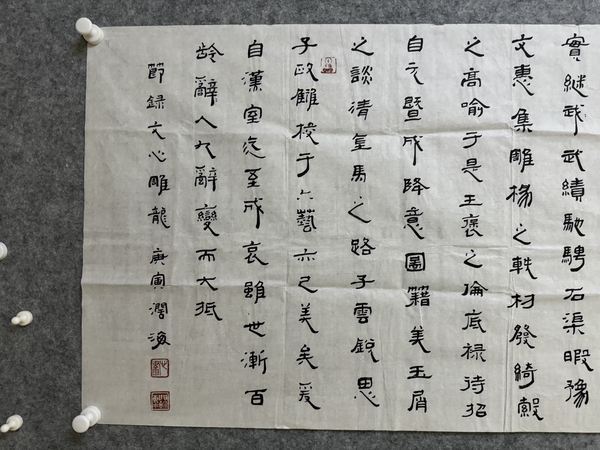 實継武武績馳騁石渠暇豫
文惠集雕楊之軼材發綺縠
之高喻于是王褒之倫底禄待招
自元暨成降意圖籍美玉屑
之談清皇馬之路子雲銳思
子政雠校于六藝亦已美矣爰
自漢室迄至成哀雖世漸百
龄辭人九辭變而大抵
節録文心雕龍 庚寅濶海